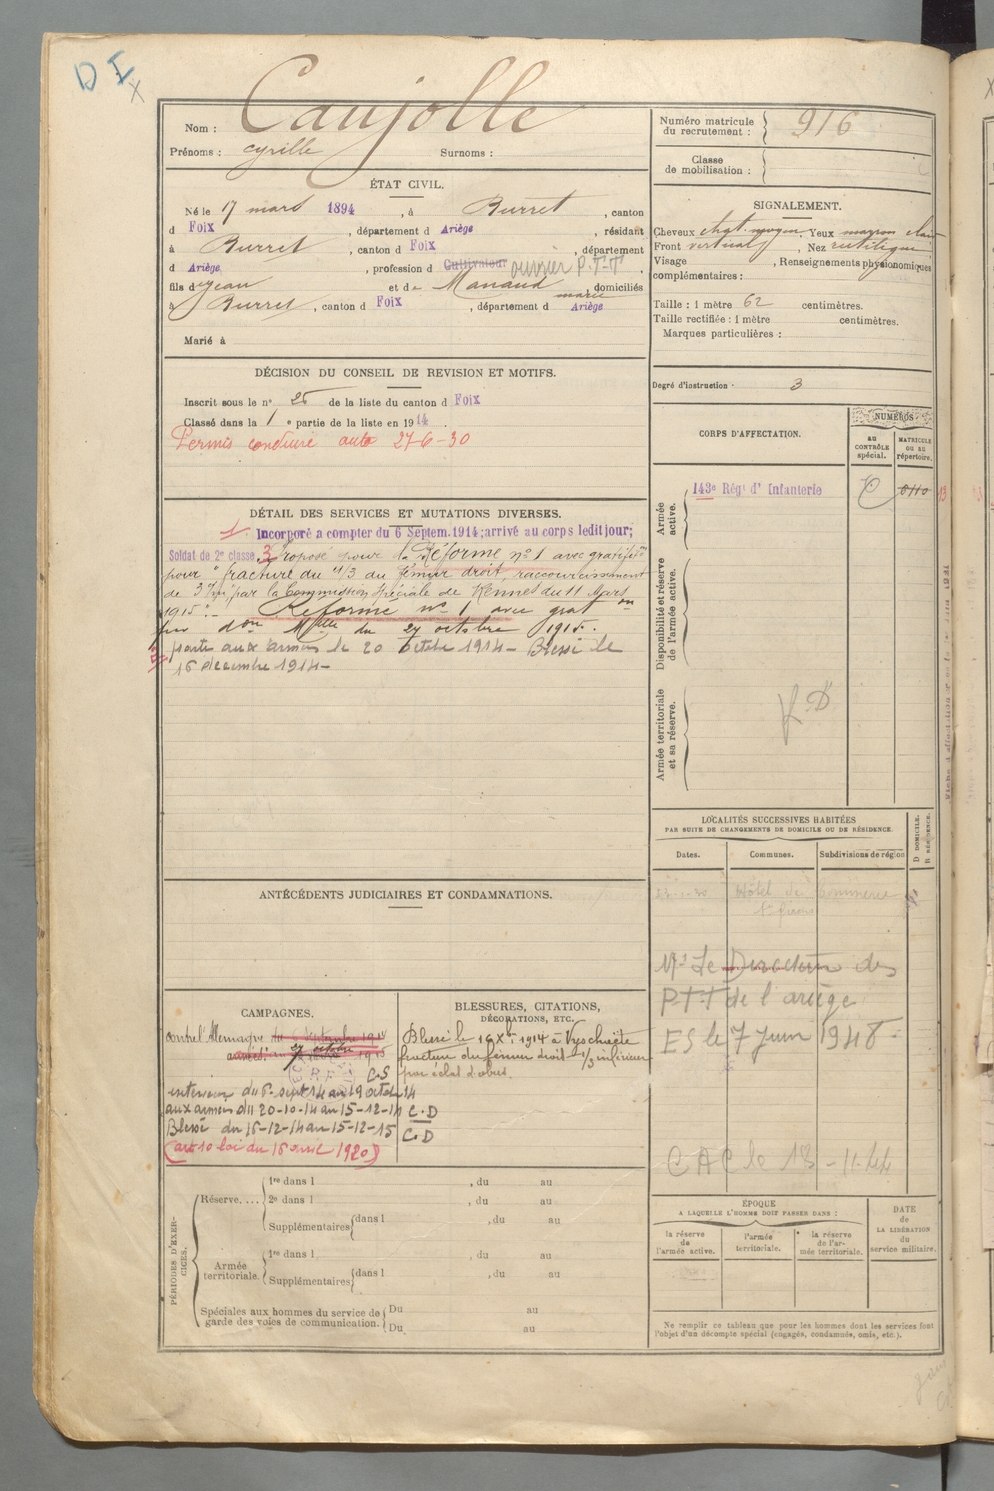 D I
x
Nom : Caujolle
Prénoms : cyrille Surnoms :
ÉTAT CIVIL.
Né le 17 mars 1894, à Burret, canton
d Foix, département d Ariège, résidant
à Burret, canton d Foix, département
d Ariège, profession d Cultivateur ouvrier P.T.T
fils de Jean et de Manaud marie, domiciliés
à Burret, canton d Foix, département d Ariège
Marié à
DÉCISION DU CONSEIL DE REVISION ET MOTIFS.
Inscrit sous le n° 25 de la liste du canton d Foix
Classé dans la 1 e partie de la liste en 1914.
Permis conduire auto 27-6-30
DÉTAIL DES SERVICES ET MUTATIONS DIVERSES.
Incorporé a compter du 6 Septem. 1914; arrivé au corps ledit jour;
Soldat de 2e classe. Proposé pour la Réforme n° 1 avec gratifon
pour "fracture du 1/3 du fémur droit, raccourcissement
de 3 c/m par la Commission spéciale de Rennes du 11 Mars
1915". Réformé n° 1 avec graton
par don Mlle du 27 octobre 1915.
parti aux armées le 20 octobre 1914 - Blessé le
16 décembre 1914 -
ANTÉCÉDENTS JUDICIAIRES ET CONDAMNATIONS.
CAMPAGNES.
contre l'Allemagne du 6 Septembre 1914
au 27 octobre 1915
C.S
intérieur du 6-sept 14 au 19 octob 14
aux armées du 20-10-14 au 15-12-14 C.D
Blessé du 16-12-14 au 15-12-15 C.D
(art 10 loi du 16 avril 1920)
BLESSURES, CITATIONS,
DÉCORATIONS, ETC.
Blessé le 16 Xbre 1914 à
fracture du fémur droit 1/3 inférieur
par éclat d'obus.
PÉRIODES D'EXERCICES.
Réserve.... 1re dans l , du au
2e dans l , du au
Supplémentaires dans l , du au
Armée territoriale. 1re dans l , du au
Supplémentaires dans l , du au
Spéciales aux hommes du service de garde des voies de communication. Du au
Du au
Numéro matricule du recrutement : 916
Classe de mobilisation :
SIGNALEMENT.
Cheveux chat. moyen. Yeux marron clair
Front vertical, Nez rectiligne
Visage , Renseignements physionomiques
complémentaires :
Taille : 1 mètre 62 centimètres.
Taille rectifiée : 1 mètre centimètres.
Marques particulières :
Degré d'instruction · 3
CORPS D'AFFECTATION.
NUMÉROS
AU CONTRÔLE spécial.
MATRICULE OU AU répertoire.
Armée active.
143e Régt d'Infanterie
Disponibilité et réserve de l'armée active.
Armée territoriale et sa réserve.
LOCALITÉS SUCCESSIVES HABITÉES
PAR SUITE DE CHANGEMENTS DE DOMICILE OU DE RÉSIDENCE.
D DOMICILE. R RÉSIDENCE.
Dates. Communes. Subdivisions de région
Hôtel du Commerce
Mr Le Directeur des
P.T.T de l'ariège
ES le 7 Juin 1948
CAC le 18-11-44
ÉPOQUE
A LAQUELLE L'HOMME DOIT PASSER DANS :
la réserve de l'armée active.
l'armée territoriale.
la réserve de l'armée territoriale.
DATE de LA LIBÉRATION du service militaire.
Ne remplir ce tableau que pour les hommes dont les services font
l'objet d'un décompte spécial (engagés, condamnés, omis, etc.).